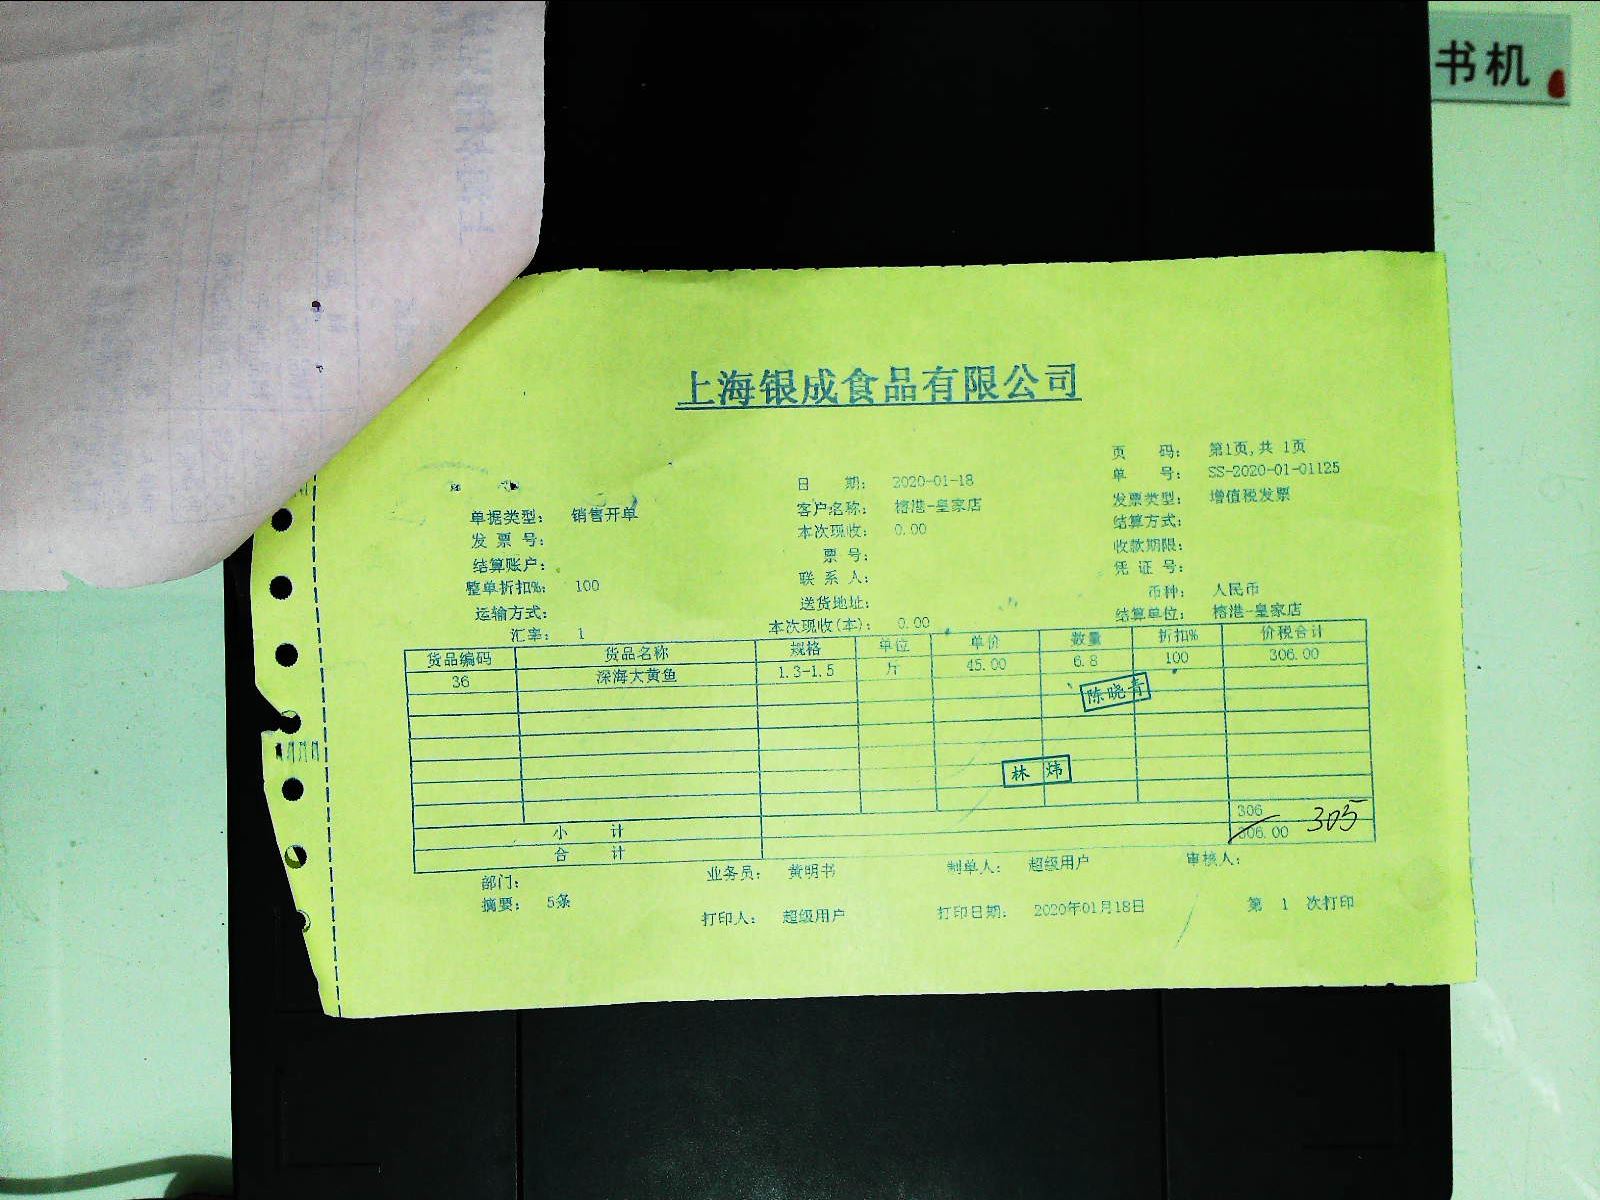 书机
上海银成食品有限公司
页 码： 第1页,共 1页
日 期： 2020-01-18 单 号： SS-2020-01-01125
单据类型： 销售开单 客户名称： 榕港-皇家店 发票类型： 增值税发票
发 票 号： 本次现收： 0.00 结算方式：
结算账户： 票 号： 收款期限：
整单折扣%： 100 联 系 人： 凭 证 号：
运输方式： 送货地址： 币种： 人民币
汇率： 1 本次现收(本)： 0.00 结算单位： 榕港-皇家店
货品编码 货品名称 规格 单位 单价 数量 折扣% 价税合计
36 深海大黄鱼 1.3-1.5 斤 45.00 6.8 100 306.00
陈晓青
林 炜
小 计 306
合 计 306.00 305
部门： 业务员： 黄明书 制单人： 超级用户 审核人：
摘要： 5条 打印人： 超级用户 打印日期： 2020年01月18日 第 1 次打印